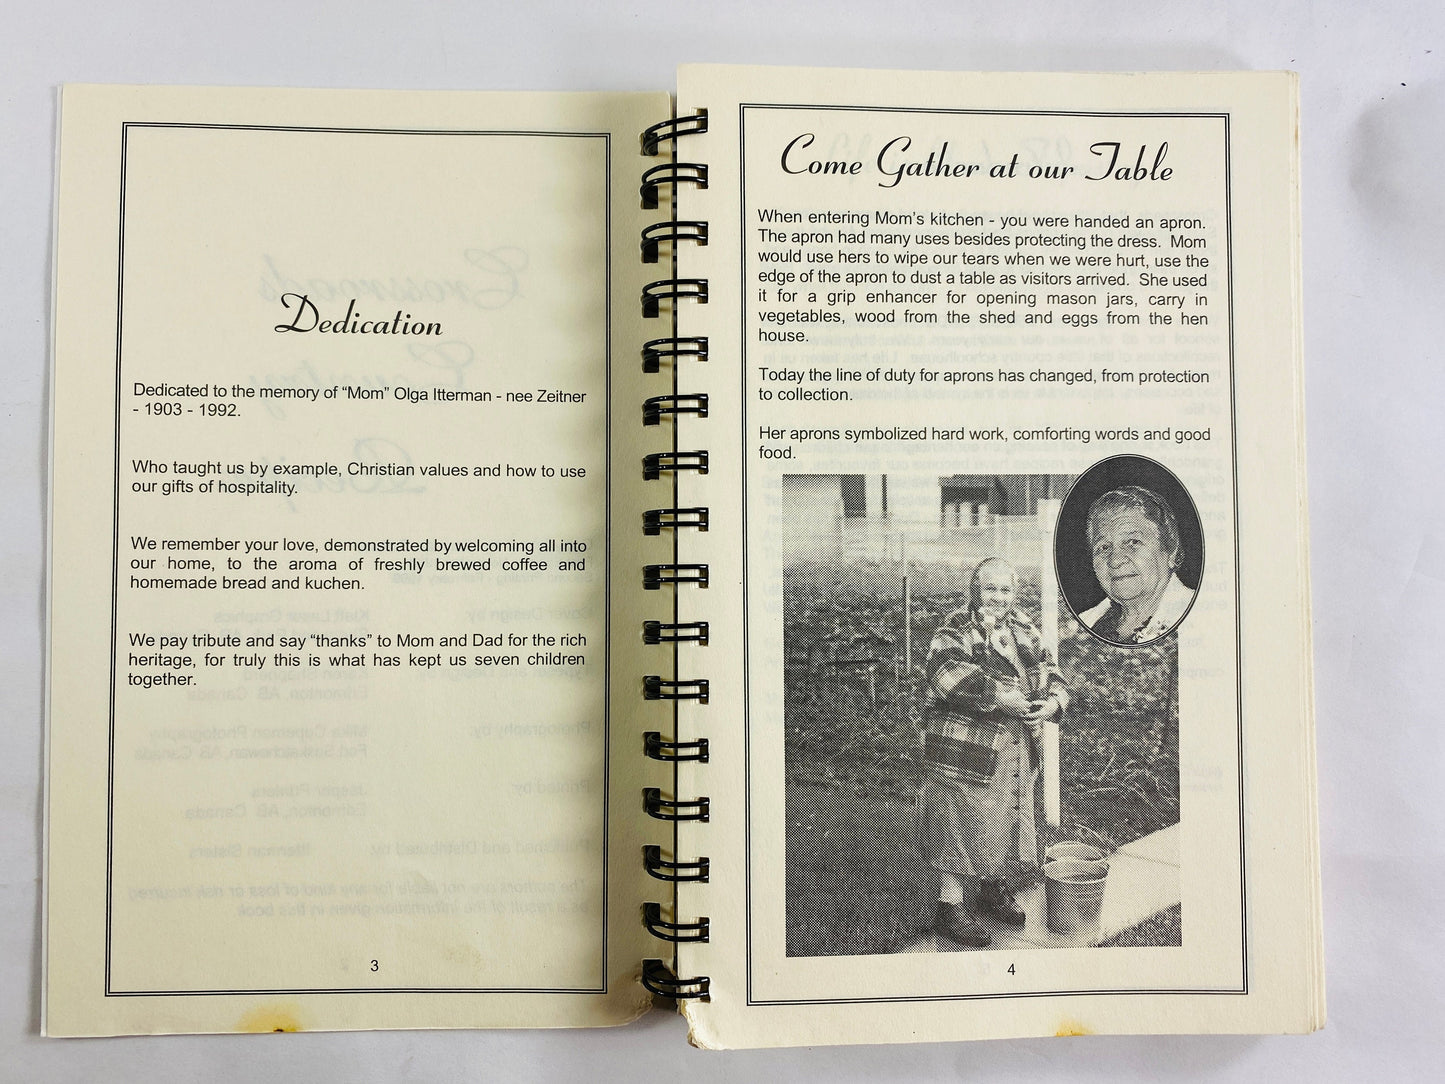 Dedication
Dedicated to the memory of “Mom” Olga Itterman - nee Zeitner
- 1903 - 1992.
Who taught us by example, Christian values and how to use
our gifts of hospitality.
We remember your love, demonstrated by welcoming all into
our home, to the aroma of freshly brewed coffee and
homemade bread and kuchen.
We pay tribute and say “thanks” to Mom and Dad for the rich
heritage, for truly this is what has kept us seven children
together.
3
Come Gather at our Table
When entering Mom’s kitchen - you were handed an apron.
The apron had many uses besides protecting the dress. Mom
would use hers to wipe our tears when we were hurt, use the
edge of the apron to dust a table as visitors arrived. She used
it for a grip enhancer for opening mason jars, carry in
vegetables, wood from the shed and eggs from the hen
house.
Today the line of duty for aprons has changed, from protection
to collection.
Her aprons symbolized hard work, comforting words and good
food.
4